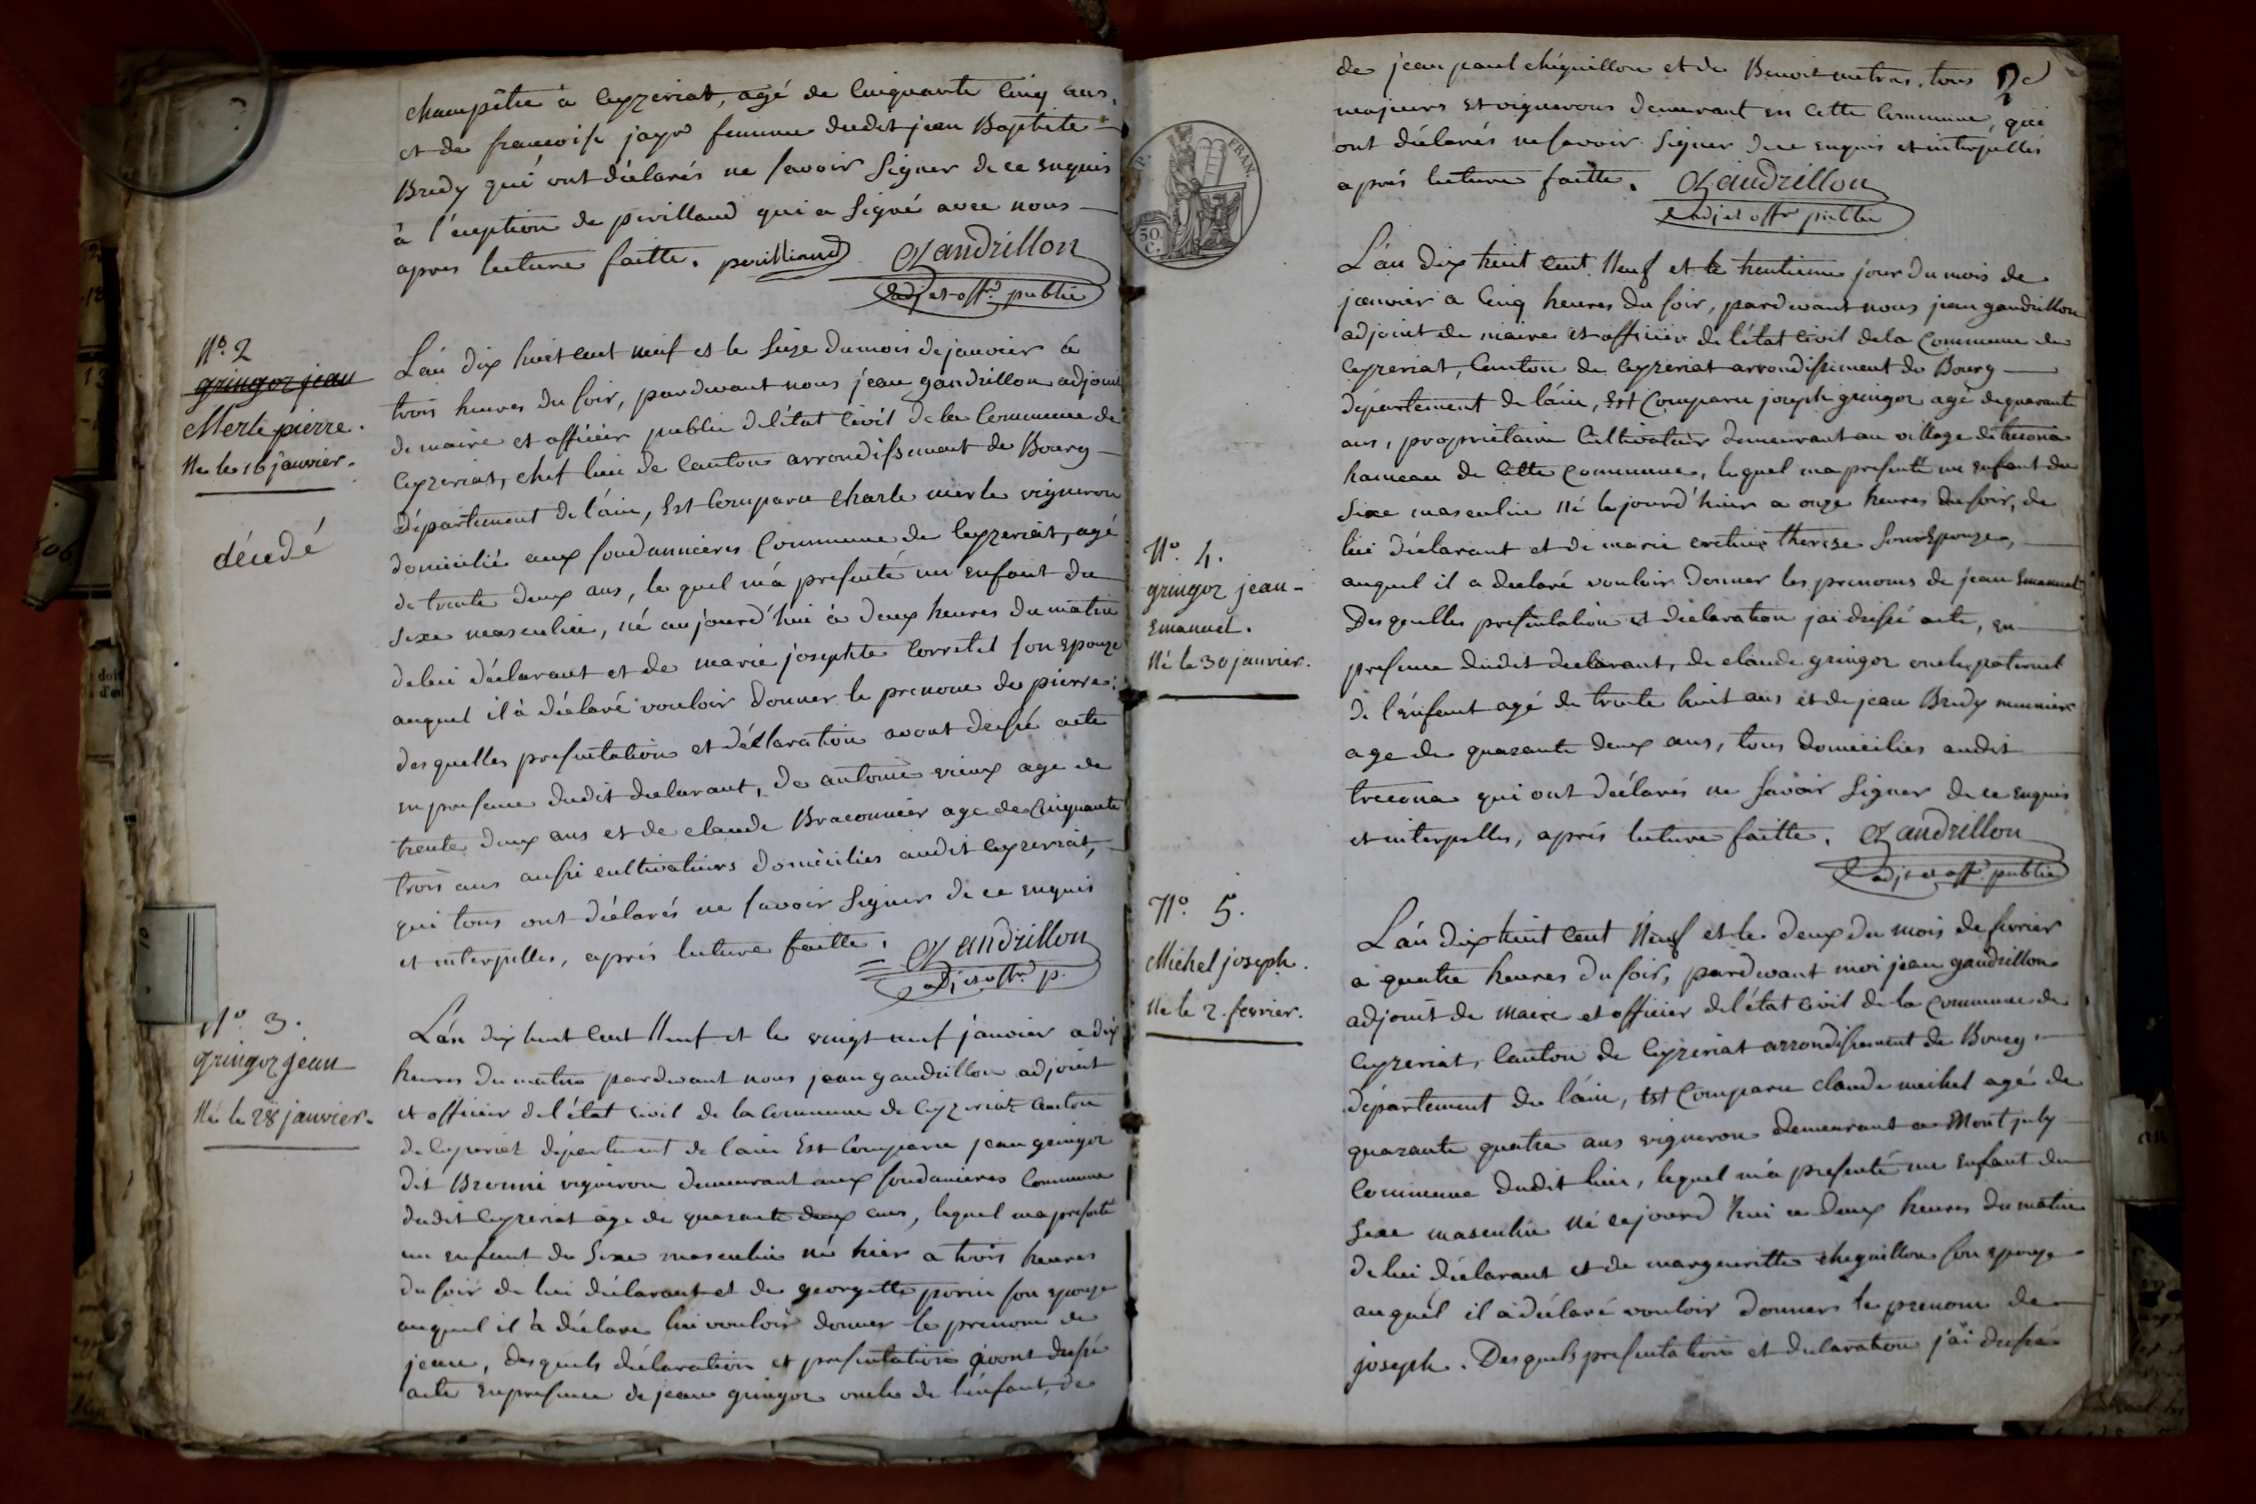 champêtre à Ceyzeriat, agé de Cinquante Cinq ans,
et de francoise jayr femme dudit jean Baptiste
Bredy qui ont déclarés ne savoir Signer de ce enquis
à l'éxeption de perilland qui a Signé avec nous
apres lecture faitte. perilliand Gandrillon
adj et offr. public
N°. 2
gringoz jean
Merle pierre.
Né le 16 janvier.
décedé
L'an dix huit cent neuf et le Seize du mois de janvier a
trois heures du soir, pardevant nous jean gandrillon adjoint
de maire et officier public de l'état Civil de la Commune de
Ceyzeriat, chef lieu de Canton arrondissement de Bourg
département de l'ain, Est Comparu Charle merle vigneron
domicilié aux soudannieres Commune de Ceyzeriat, agé
de trente deux ans, lequel m'a presenté un enfant du
Sexe masculin, né aujourd'hui à deux heures du matin
de lui déclarant et de marie josephte Corretel son epouze
auquel il à déclaré vouloir donner le prenom de pierre:
desquelles presentation et déclaration avont dressé acte
en presence dudit declarant, de antoine vieux age de
trente deux ans et de claude Braconnier age de Cinquante
trois ans aussi cultivateurs domiciliés audit Ceyzeriat,
qui tous ont déclarés ne savoir Signer de ce enquis
et interpellés, après lecture faitte. Gandrillon
adj et offr. p.
N°. 3.
gringoz jean
Né le 28 janvier.
L'an dix huit Cent Neuf et le vingt neuf janvier a dix
heures du matin pardevant nous jean gandrillon adjoint
et officier de l'état civil de la Commune de Ceyzeriat Canton
de Ceyzeriat département de l'ain Est Comparu jean gringoz
dit vigneron demeurant aux soudanieres Commune
dudit Ceyzeriat age de quarante deux ans, lequel ma presenté
un enfant du Sexe masculin né hier a trois heures
du soir de lui déclarant et de georgette perin son epouze
auquel il à déclaré lui vouloir donner le prenom de
jean, desquels déclaration et presentation avont dressé
acte en presence de jean gringoz oncle de l'enfant, de
de jean paul chéguillon et de Benoit metras. tous 2e
majeurs et vignerons demeurant en Cette Commune, qui
ont déclarés ne savoir Signer de ce enquis et interpellés
aprés lecture faitte. Gandrillon
adj et offr public
FRAN.
50
C.
L'an dix huit Cent Neuf et le trentieme jour du mois de
janvier a Cinq heures du soir, pardevant nous jean gandrillon
adjoint de maire et officier de l'état civil de la Commune de
Ceyzeriat, Canton de Ceyzeriat arrondissement de Bourg
département de l'ain, Est Comparu joseph gringoz agé de quarante
ans, propriétaire Cultivateur demeurant au village de treconã
hameau de Cette Commune, lequel ma presenté un enfant du
Sexe masculin Né le jourd'hier a onze heures du soir, de
lui déclarant et de marie therese Son Epouze,
auquel il a declaré vouloir donner les prenoms de jean Emanuel
Desquelles presentation et déclaration j'ai dressé acte, en
presence dudit declarant, de claude gringoz oncle paternel
de l'énfant agé de trente huit ans et de jean Bredy meunier
age de quarante deux ans, tous domiciliés audit
trecona qui ont déclarés ne savoir Signer de ce enquis
et interpellés, aprés lecture faitte. Gandrillon
adj et offr. public
N°. 4.
gringoz jean-
Emanuel.
Né le 30 janvier.
N°. 5.
Michel joseph.
Né le 2. fevrier.
L'an dix huit Cent Neuf et le deux du mois de fevrier
a quatre heures du soir, pardevant moi jean gandrillon
adjoint de Maire et officier de l'état civil de la Commune de
Ceyzeriat, Canton de Ceyzeriat arrondissement de Bourg,
département de l'ain, Est Comparu claude michel agé de
quarante quatre ans vigneron demeurant a Mont july
Commune dudit lieu, lequel m'a presenté un enfant du
Sexe masculin Né cejourd'hui a deux heures du matin
de lui déclarant et de margueritte cheguillon son epouze
auquel il a déclaré vouloir donner le prenom de
joseph. Desquels presentation et declaration j'ai dressé